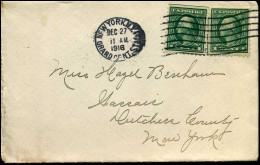 NEW YORK, N.Y.
GRAND CENT. STA.
DEC 27
11 AM
1916
Miss Hazel Benham
Dutchess County
New York